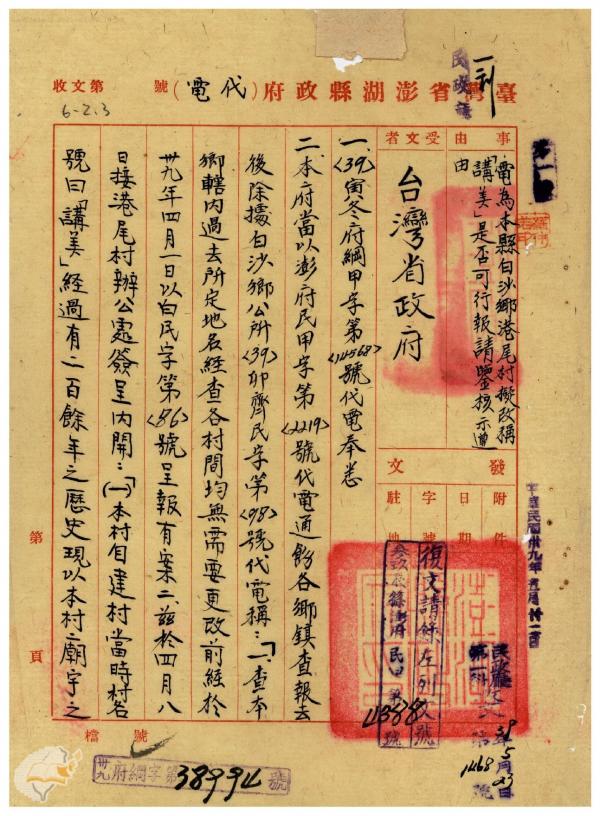 臺灣省澎湖縣政府（代電）
收文第 號
6-2.3
事由
電為本縣白沙鄉港尾村擬改稱
「講美」是否可行報請鑒核示遵
由
受文者
台灣省政府
發文
附件
日期
字號
駐地
復文請錄左列文號
4388
中華民國卅九年
一、〈39〉寅冬府綱甲字第〈14568〉號代電奉悉
二、本府當以澎府民甲字第〈2219〉號代電通飭各鄉鎮查報去
後除據白沙鄉公所〈39〉卯齊民字第〈98〉號代電稱：「一、查本
鄉轄內過去所定地名經查各村間均無需要更改前經於
卅九年四月一日以白民字第〈86〉號呈報有案二、茲於四月八
日接港尾村辦公處簽呈內開：「（一）本村自建村當時村名
號曰「講美」經過有二百餘年之歷史現以本村二廟宇之
第 頁
檔號
卅九府綱字第38994號
39年5月23日
1468號